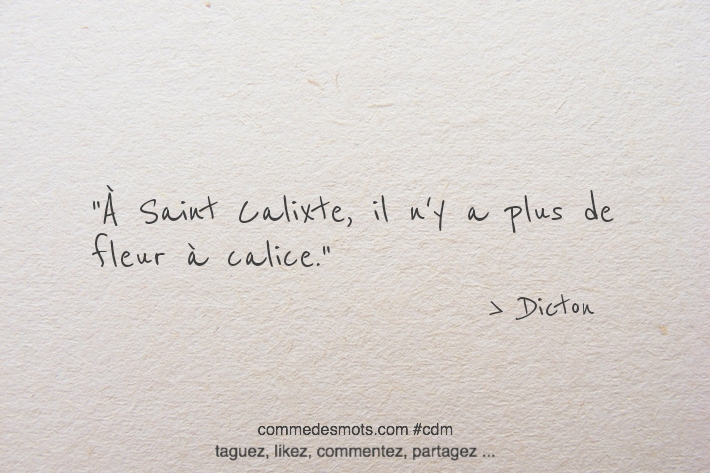 "À Saint Calixte, il n'y a plus de
fleur à calice."
> Dicton
commedesmots.com #cdm
taguez, likez, commentez, partagez ...